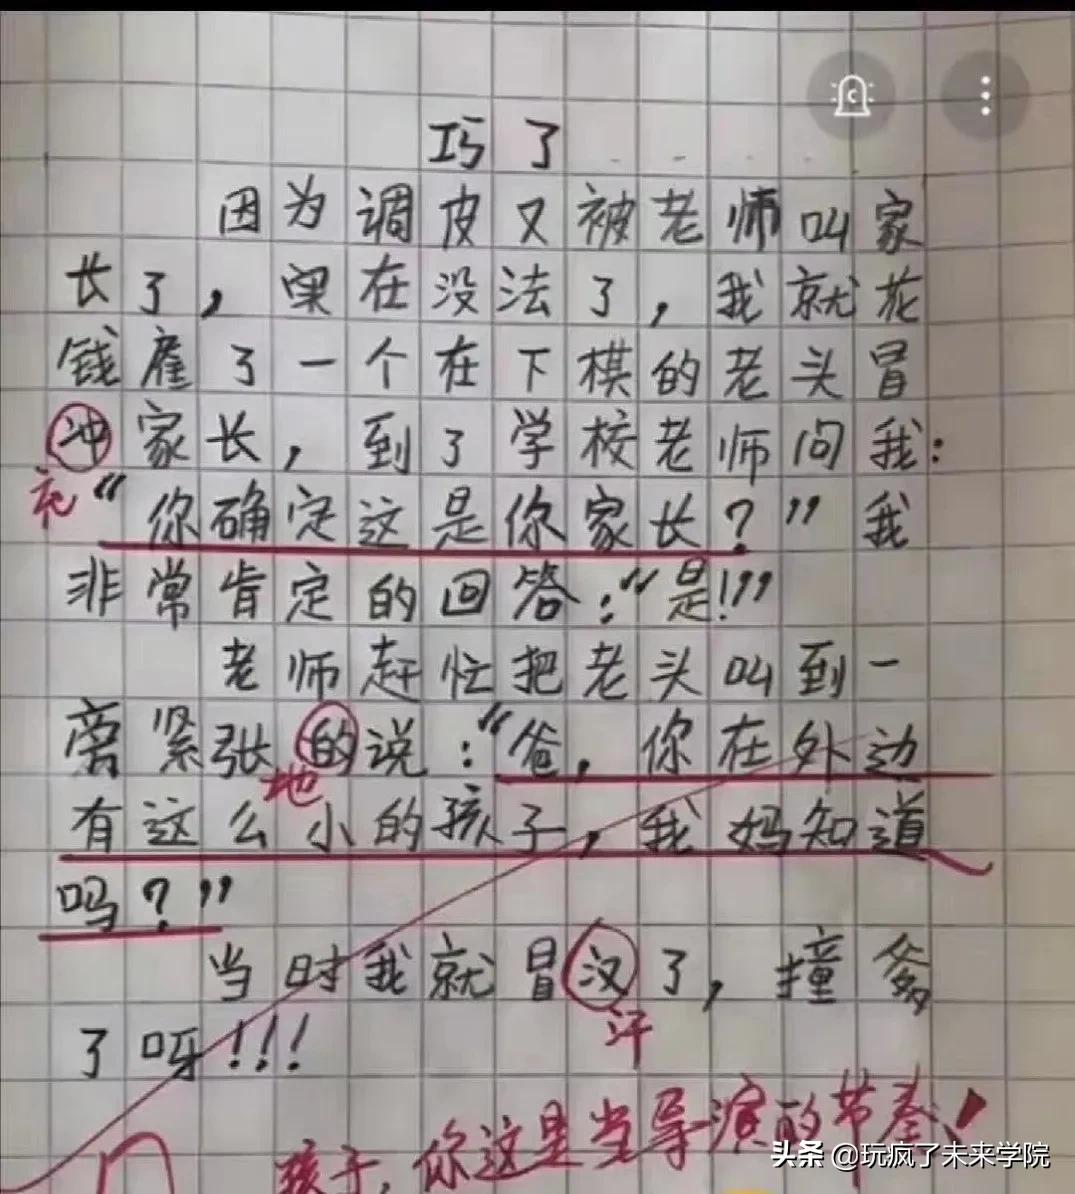 巧了
因为调皮又被老师叫家
长了，实在没法了，我就花
钱雇了一个在下棋的老头冒
冲家长，到了学校老师问我：
充
“你确定这是你家长？”我
非常肯定的回答：“是！”
老师赶忙把老头叫到一
旁紧张的说：“爸，你在外边
地
有这么小的孩子，我妈知道
吗？”
当时我就冒汉了，撞爹
汗
了呀！！！
孩子，你这是当导演的节奏！
头条 @玩疯了未来学院